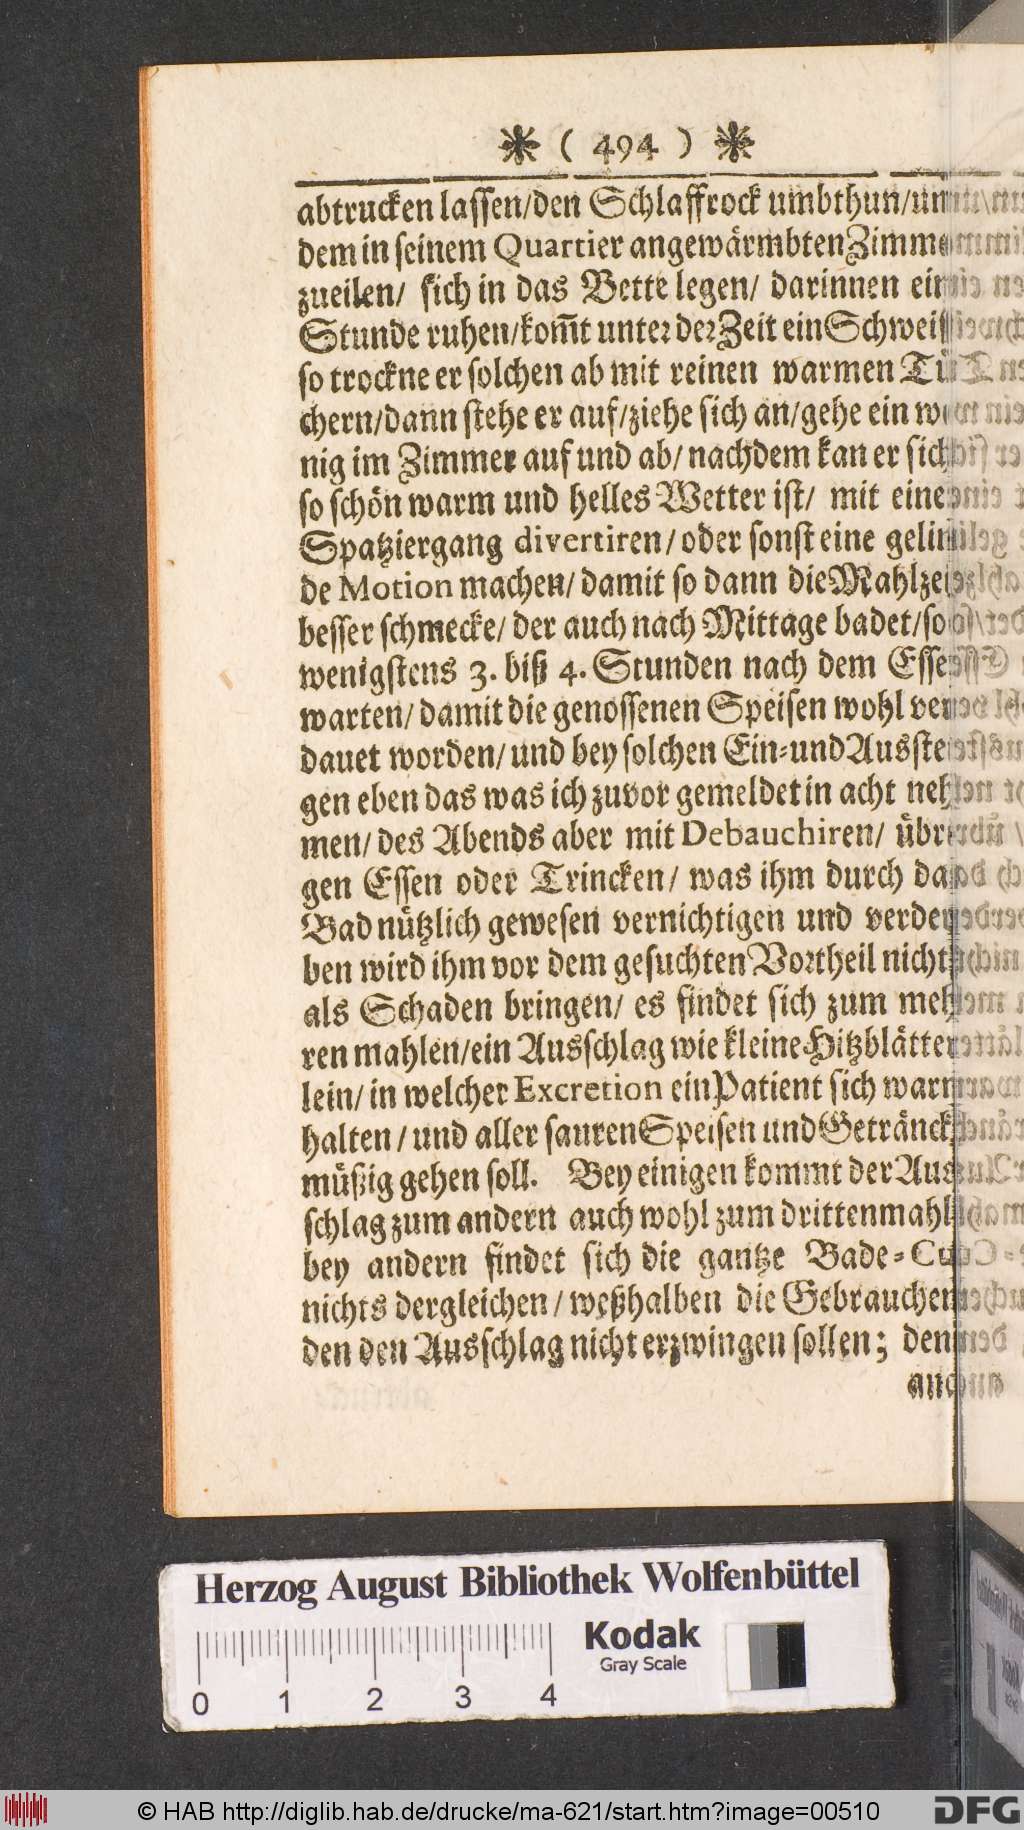 * ( 494 ) *
abtrucken lassen/den Schlaffrock umbthun/
dem in seinem Quartier angewärmbten
zueilen/ sich in das Bette legen/ darinnen
Stunde ruhen/kom̃t unter der Zeit ein
so trockne er solchen ab mit reinen warmen
chern/dann stehe er auf/ziehe sich an/gehe ein
nig im Zimmer auf und ab/ nachdem kan er
so schön warm und helles Wetter ist/ mit
Spatziergang divertiren/ oder sonst eine
de Motion machen/ damit so dann die
besser schmecke/ der auch nach Mittage badet/
wenigstens 3. biß 4. Stunden nach dem
warten/ damit die genossenen Speisen wohl
dauet worden/ und bey solchen Ein-und
gen eben das was ich zuvor gemeldet in acht
men/ des Abends aber mit Debauchiren/
gen Essen oder Trincken/ was ihm durch
Bad nützlich gewesen vernichtigen und
ben wird ihm vor dem gesuchten Vortheil
als Schaden bringen/ es findet sich zum
ren mahlen/ein Ausschlag wie kleine
lein/ in welcher Excretion ein Patient sich
halten / und aller sauren Speisen und
müßig gehen soll. Bey einigen kommt der
schlag zum andern auch wohl zum
bey andern findet sich die gantze
nichts dergleichen / weßhalben die
den den Ausschlag nicht erzwingen sollen;
Herzog August Bibliothek Wolfenbüttel
Kodak
Gray Scale
0 1 2 3 4
© HAB http://diglib.hab.de/drucke/ma-621/start.htm?image=00510
DFG